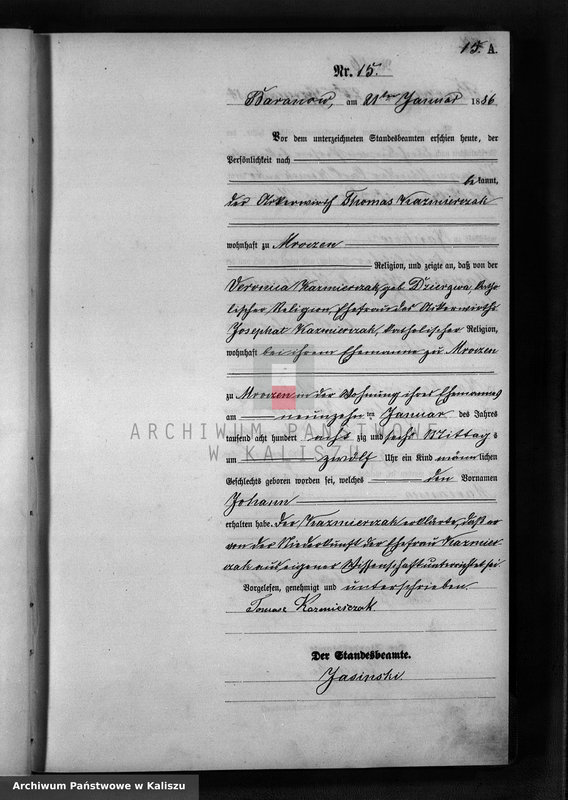 15. A.
Nr. 15.
Baranow, am 21ten Januar 1886
Vor dem unterzeichneten Standesbeamten erschien heute, der
Persönlichkeit nach
bekannt,
der Ackerwirth Thomas Kazmierczak
wohnhaft zu Mroczen
Religion, und zeigte an, daß von der
Veronica Kazmierczak, geb. Dziergwa, katho-
lischer Religion, Ehefrau des Ackerwirths
Josephat Kazmierczak, katholischer Religion,
wohnhaft bei ihrem Ehemanne zu Mroczen
zu Mroczen in der Wohnung ihres Ehemannes
am neunzehn ten Januar des Jahres
tausend acht hundert acht zig und sechs Mittags
um zwölf Uhr ein Kind männlichen
Geschlechts geboren worden sei, welches den Vornamen
Johann
erhalten habe. Der Kazmierczak erklärte, daß er
von der Niederkunft der Ehefrau Kazmier-
czak aus eigener Wissenschaft unterrichtet sei.
Vorgelesen, genehmigt und unterschrieben.
Tomasz Kazmierczak
Der Standesbeamte.
Jasinski
ARCHIWUM PAŃSTWOWE
W KALISZU
Archiwum Państwowe w Kaliszu